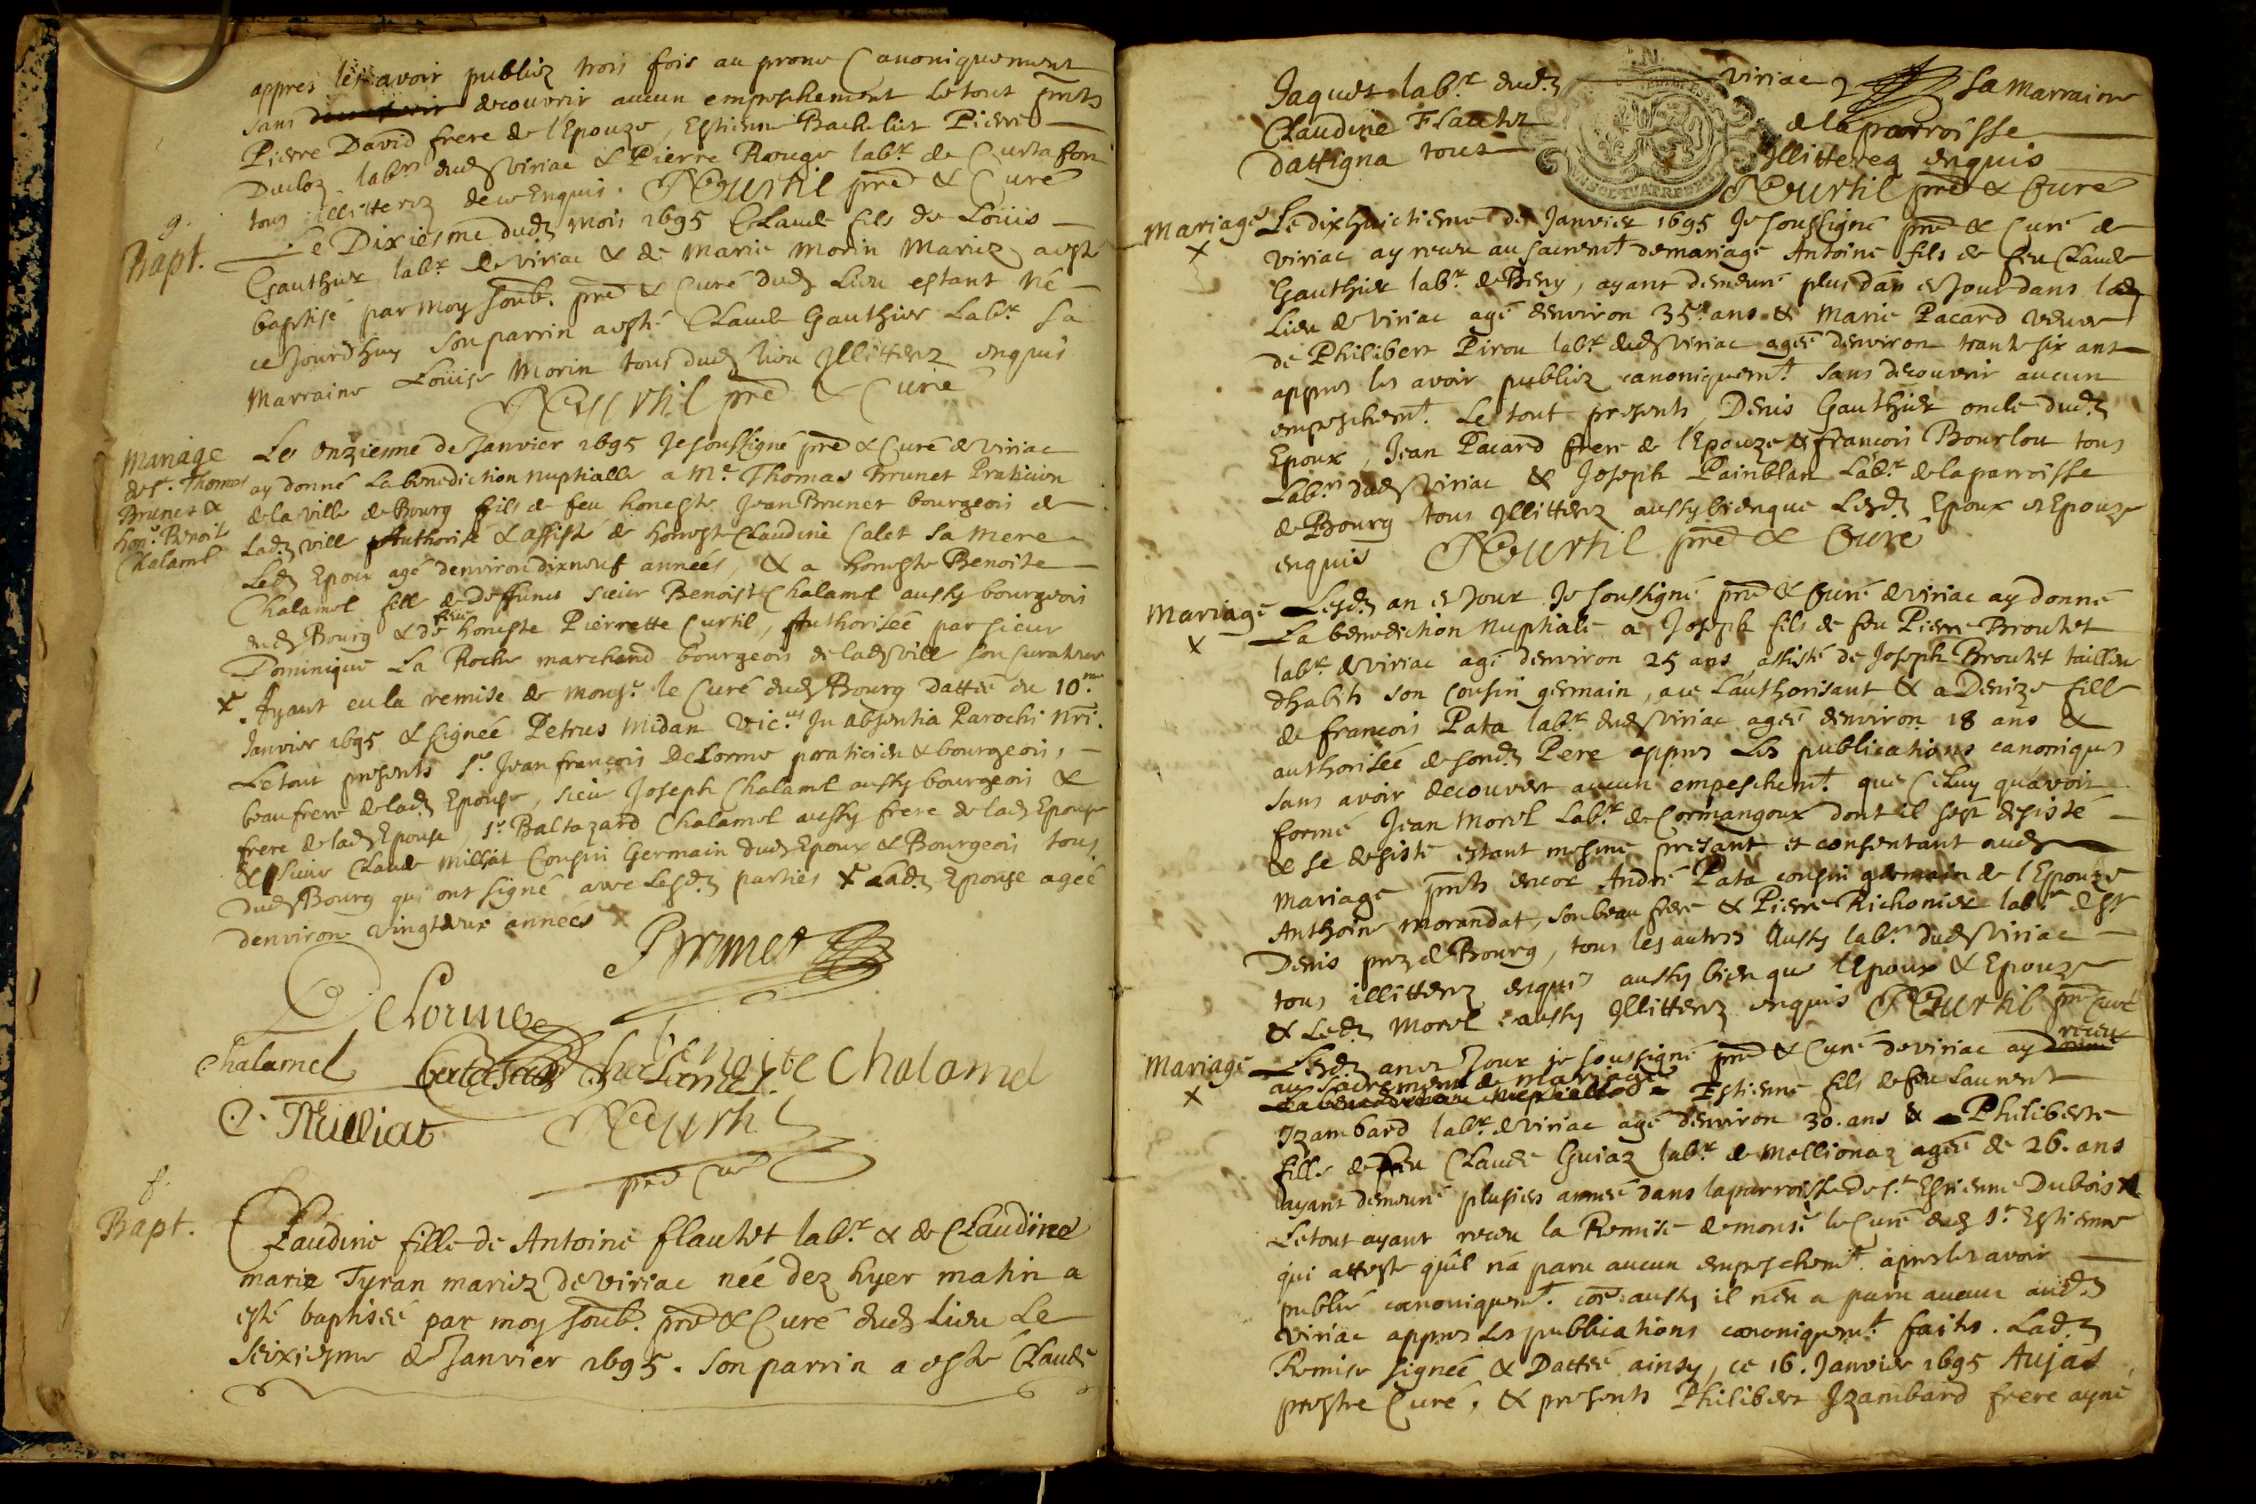 appres les avoir publiez trois fois au prone Canoniquement
sans decouvrir aucun empeschement Letout pnts
Pierre David frere de l'Epouze, Estienne Bachelier Pierre
Ducloz labrs dudz viriac & Pierre Rouge labr. de Curtafon
tous illitterez de ce Enquis. Courtil pre & Curé
9.
Bapt.
Le Dixiesme dudz mois 1695 Claude fils de Loüis
Gauthier labr. de viriac & de Marie Morin Mariez a esté
baptisé par moy soub. pre & Curé dudz Lieu estant né
ce Jourdhuy son parrin a esté Claude Gauthier Labr. sa
Marraine Loüise Morin tous dudz lieu Jllitterez enquis
Courtil pre & Curé
Mariage
de sr. Thomas
Brunet &
hon. Benoite
Chalamel
Le Onzienne de Janvier 1695 Je soussigné pre & Curé de viriac
ay donné La benediction nuptialle a Me. Thomas Brunet Praticien
de la ville de Bourg fils de feu honeste Jean Brunet bourgeois de
Ladz ville Authorisé & assisté de honeste Claudine Calet sa Mere
Ledz Epoux agé denviron dixneuf années, & a honeste Benoite
Chalamel fille de deffunct sieur Benoist Chalamel aussy bourgeois
dudz Bourg & de feüe honeste Pierrette Curtil, Authorisée par sieur
Dominique La Roche marchand bourgeois de ladz ville son Curateur
x. Ayant eu la remise de monsr. le Curé dudz Bourg dattée du 10me
Janvier 1695 & signée Petrus Midan vic.us Jn absentia Parochi nri.
Letout presents sr. Jean françois DeLorme praticien & bourgeois,
beaufrere de ladz Epouse, sieur Joseph Chalamel aussy bourgeois &
frere de ladz Epouse, sr. Baltazard Chalamel aussy frere de ladz Epouse
& sieur Claude Milliat Cousin Germain dudz Epoux & Bourgeois tous
dudz Bourg qui ont signé avec Lesdz parties x Ladz Epouse ageé
denviron vingtdeux années x
Brunet
DeLorme
Chalamel
Benoite Chalamel
C. Milliat
Courtil
pre Curé
8.
Bapt.
Claudine fille de Antoine flautet labr. & de Claudine
marie Tyran mariez de viriac née dez hyer matin a
esté baptisée par moy soub. pre & Curé dudz Lieu Le
seixiesme de Janvier 1695. son parrin a esté Claude
Jaques labr. dudz viriac & sa Marraine
Claudine Flautet de la parroisse
dattigna tous Jllitterez enquis
Courtil pre & Curé
Mariage
x
Le dixhuictieme de Janvier 1695 Je soussigné pre & Curé de
viriac ay receu au sacremt de mariage Antoine fils de feu Claude
Gauthier labr. de Beny, ayant demeuré plus dan & Jour dans ledz
Lieu de viriac agé denviron 35. ans & Marie Pacard veuve
de Philibert Pirou labr. dudz viriac agée denviron trante six ans
appres les avoir publiez canoniquemt. sans decouvrir aucun
empeschemt. Le tout presents, Denis Gauthier oncle dudz
Epoux, Jean Pacard frere de l'Epouze & françois Bourlou tous
Labrs dudz viriac & Joseph Painblan Labr. de la parroisse
de Bourg tous Jllitterez aussy bienque Lesdz Epoux et Epouze
enquis Courtil pre & Curé
Mariage
x
Lesdz an et Jour Je soussigné pre & Curé de viriac ay donné
La benediction Nuptiale a Joseph fils de feu Pierre Broutet
labr. de viriac agé denviron 25 ans assisté de Joseph Broutet tailleur
dhabits son Cousin germain, ave Lauthorisant & a Denize fille
de francois Pata labr. dudz viriac ageé denviron 18 ans &
authorisée de sondz Pere appres Les publications canoniques
sans avoir decouvert aucun empeschemt. que Celuy qu'avoit
formé Jean Morel Labr. de Cormangoux dont il sest desisté
& se desiste estant mesme presant et consentant audz
Mariage pnts encor André Pata cousin germain de l'Epouze
Anthoine Morandat, son beau frere & Pierre Richonier labr. de st
Denis prez de Bourg, tous les autres Aussy labrs dudz viriac
tous illitterez enquis aussy bien que l'Epoux & Epouze
& Ledz Morel aussy Jllitterez enquis Courtil pre Curé
Mariage
x
Lesdz an et Jour je soussigné pre & Curé de viriac ay receu
au sacrement de mariage Estienne fils de feu Laurent
Jzambard labr. de viriac agé denviron 30. ans & Philiberte
fille de feu Claude Guiaz labr. de Mellionaz ageé de 26. ans
ayant demeuré plusieurs année dans la parroisse de st. Estienne Dubois
Letout ayant receu la Remise de monsr. le Curé dudz st. Estienne
qui atteste quil n'a paru aucun empeschemt. apres les avoir
publié canoniquemt. coe aussy il nen a paru aucun audz
viriac appres Les publications canoniquemt. faites. Ladz
Remise signeé & Dattée ainsy, ce 16. Janvier 1695 Aujas
prestre Curé. & presents Philibert Jzambard frere ayné